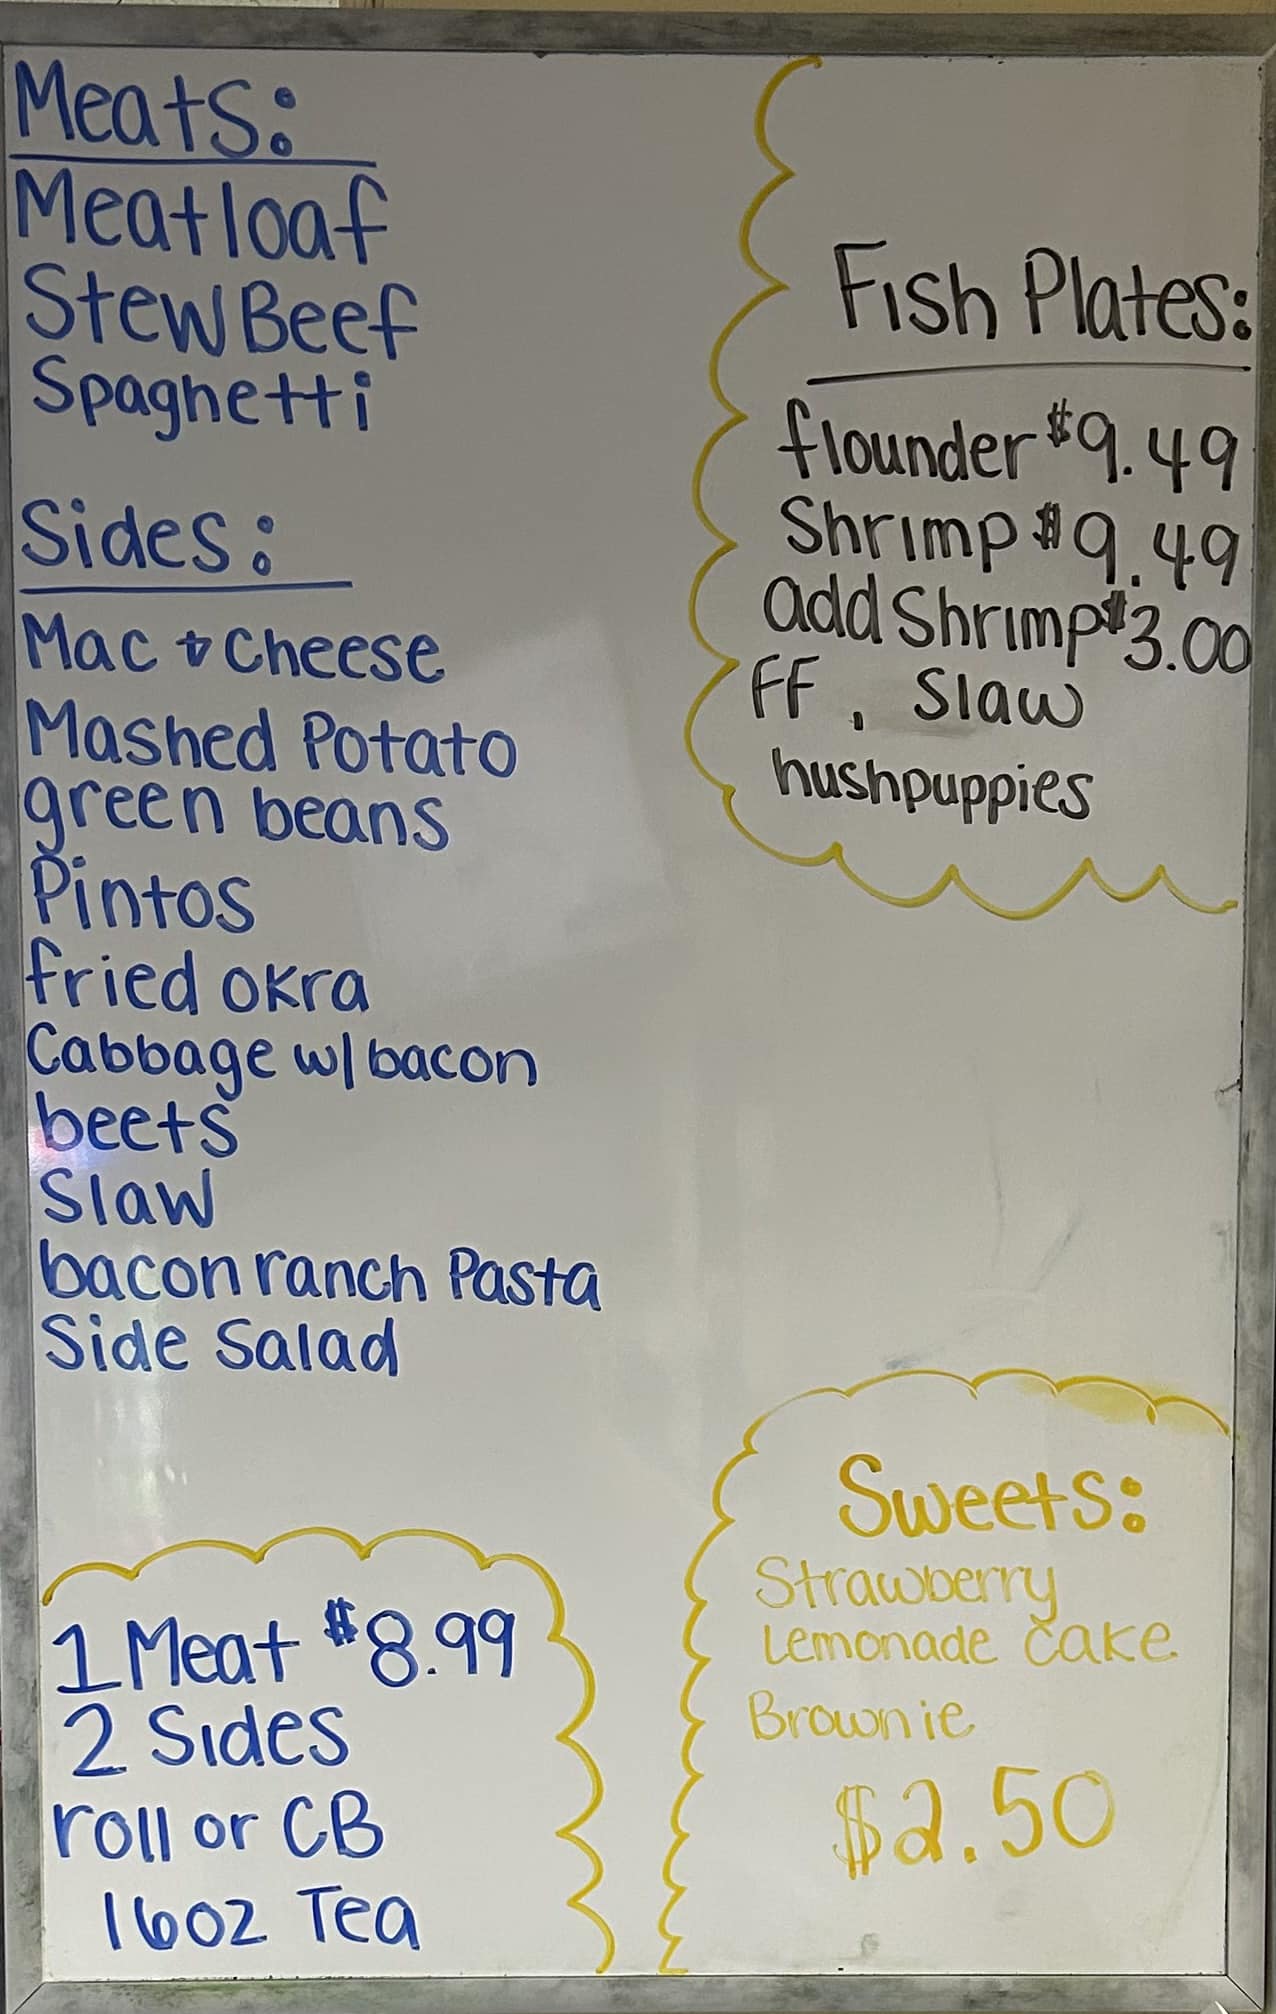 Meats:
Meatloaf
Stew Beef
Spaghetti
Sides:
Mac & Cheese
Mashed Potato
green beans
Pintos
fried okra
Cabbage w/ bacon
beets
Slaw
bacon ranch Pasta
Side Salad
1 Meat $8.99
2 Sides
roll or CB
16oz Tea
Fish Plates:
flounder $9.49
Shrimp $9.49
add Shrimp $3.00
FF, Slaw
hushpuppies
Sweets:
Strawberry
Lemonade Cake
Brownie
$2.50